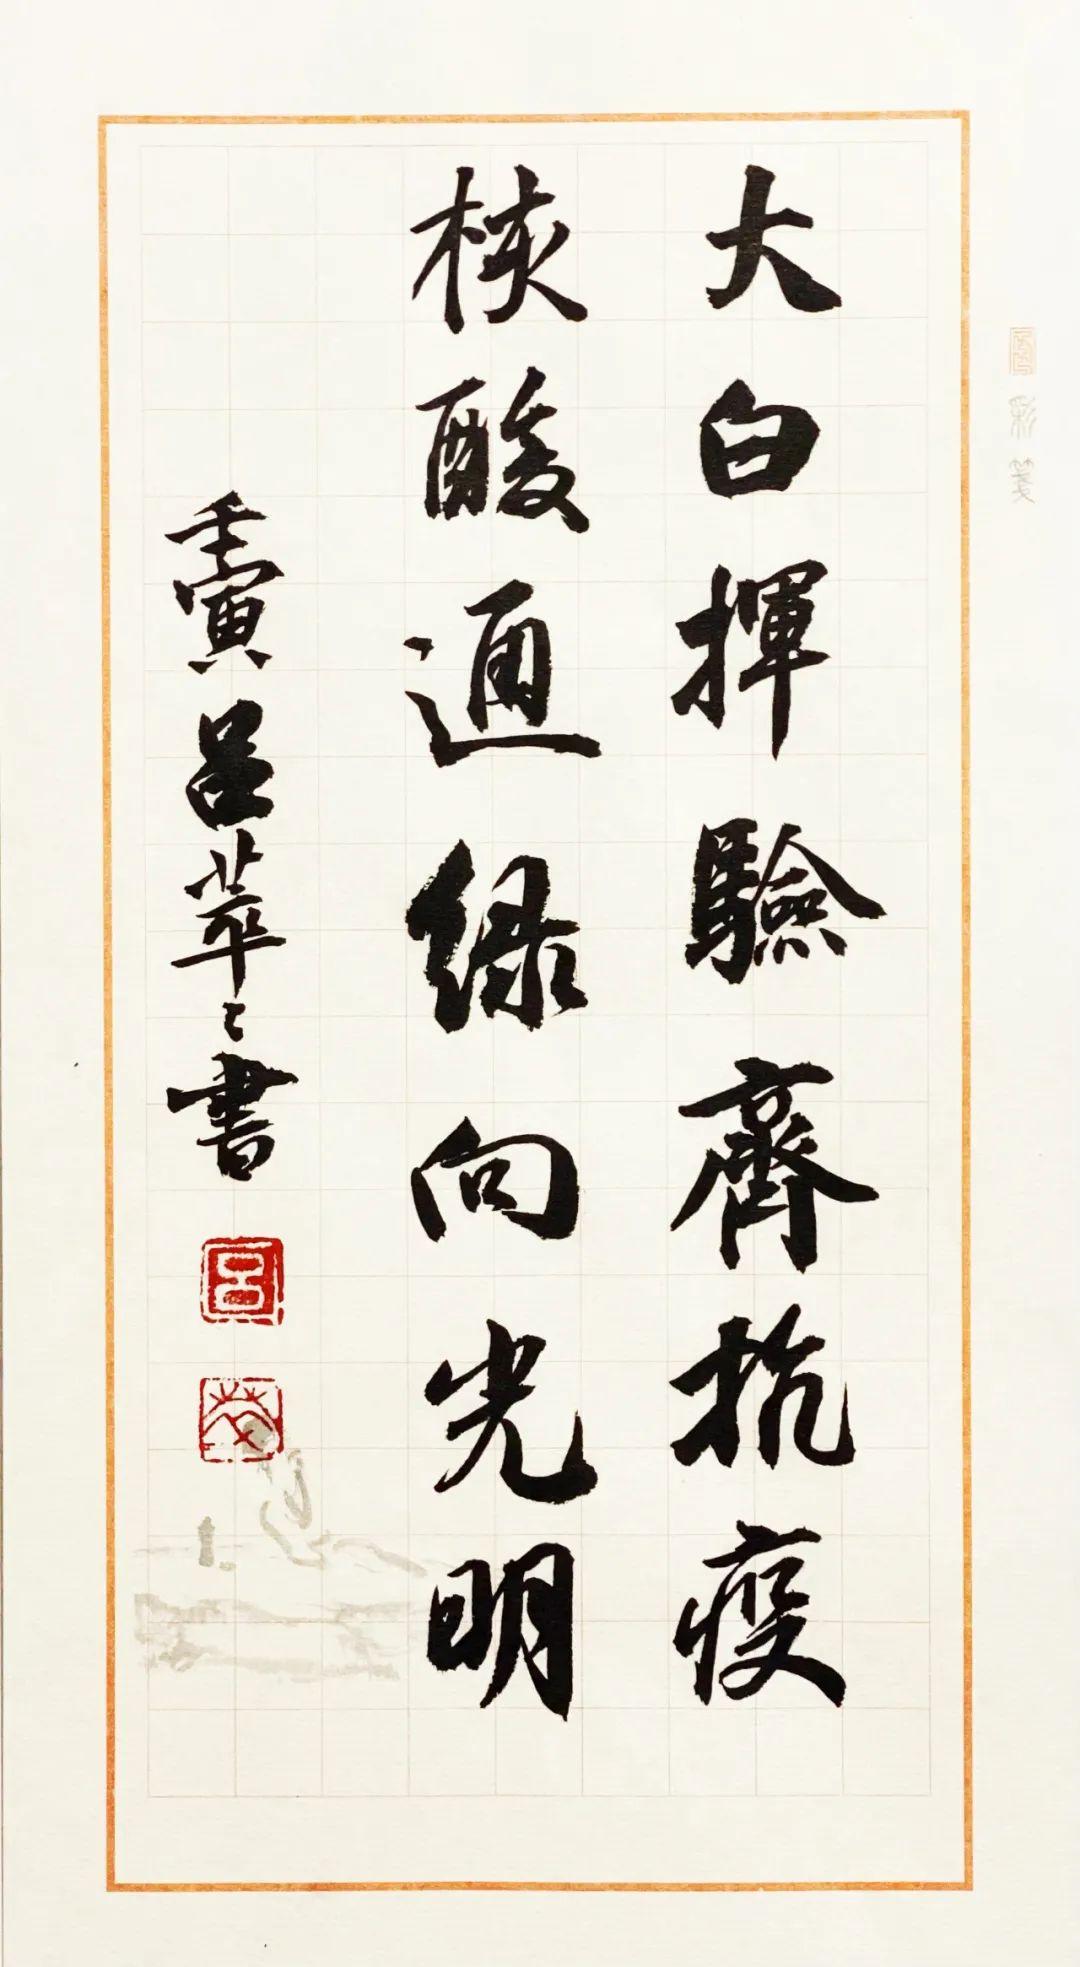 大白揮驗齊抗疫
核酸通緑向光明
壬寅吕萃々書
吕
彩箋